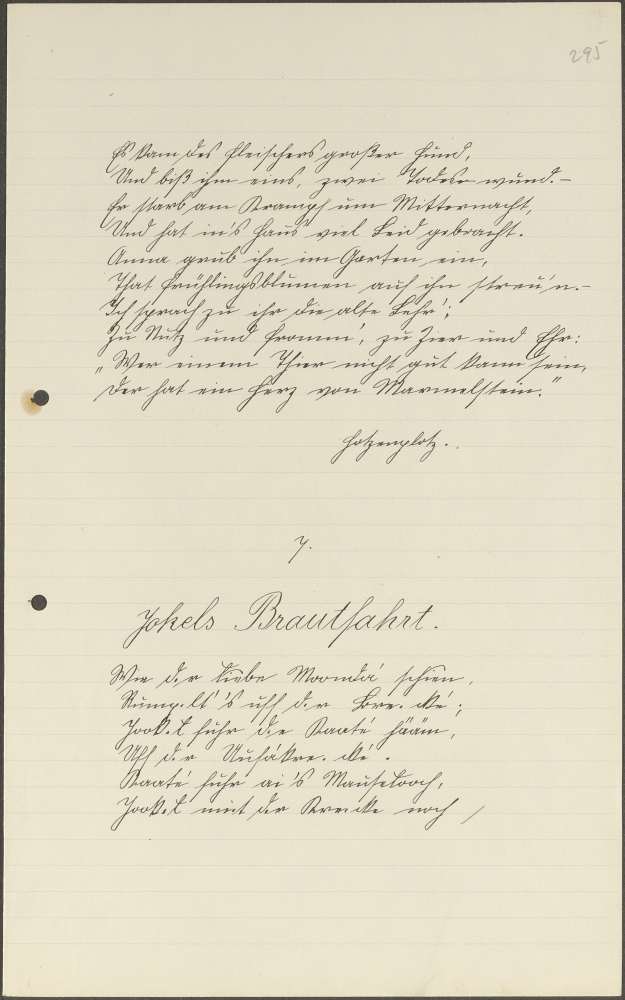 295
Es kam des Fleischers großer Hund,
Und biß ihm eins, zwei Todes wund. –
Er starb am Krampf um Mitternacht,
Und hat in's Haus viel Leid gebracht.
Anna grub ihn im Garten ein,
That Frühlingsblumen auf ihn streu'n. –
Ich sprach zu ihr die alte Lehr';
Zu Nutz und Fromm', zu Zier und Ehr:
"Wer einem Thier nicht gut kann sein,
Der hat ein Herz von Marmelstein."
Hotzenplotz.
7.
Jokels Brautfahrt.
Wie d'r liebe Moondá schien,
Rumpelt 's uff d'r
Jook'l fuhr die Kaaté hääm,
Uff d'r
Kaaté fuhr ai's Mauseloch,
Jook'l mit der noch